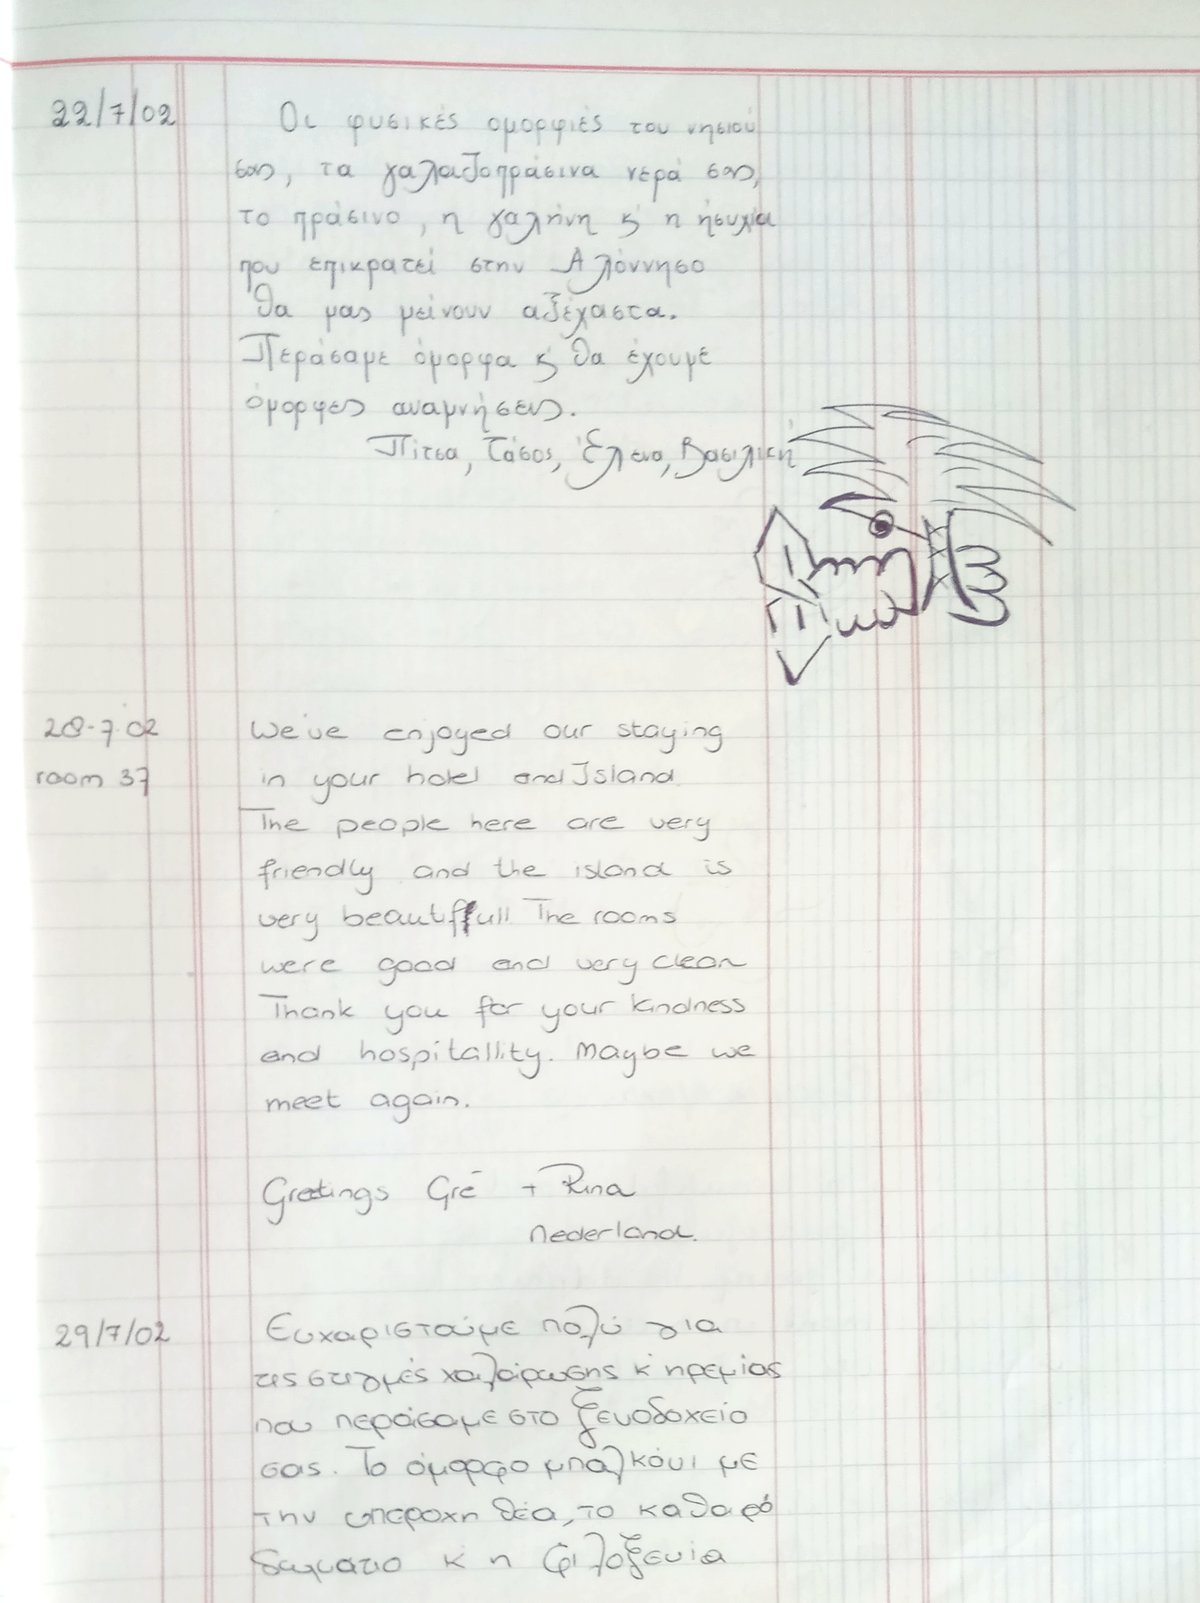 22/7/02 Οι φυσικές ομορφιές του νησιού
σας, τα γαλαζοπράσινα νερά σας,
το πράσινο, η γαλήνη κ' η ήσυχία
που επικρατεί στην Αλόννησο
θα μας μείνουν αξέχαστα.
Περάσαμε όμορφα κ' θα έχουμε
όμορφες αναμνήσεις.
Πίτσα, Τάσος, Έλενα, Βασιλική
28-7-02 We've enjoyed our staying
room 37 in your hotel and Island.
The people here are very
friendly and the island is
very beautiffull. The rooms
were good and very clean
Thank you for your kindness
and hospitallity. Maybe we
meet again.
Greetings Gré + Rina
Nederland.
29/7/02 Ευχαριστούμε πολύ για
τις στιγμές χαλάρωσης κ' ηρεμίας
που περάσαμε στο ξενοδοχείο
σας. Το όμορφο μπαλκόνι με
την υπεροχη θέα, το καθαρό
δωματιο κ' η φιλοξενία